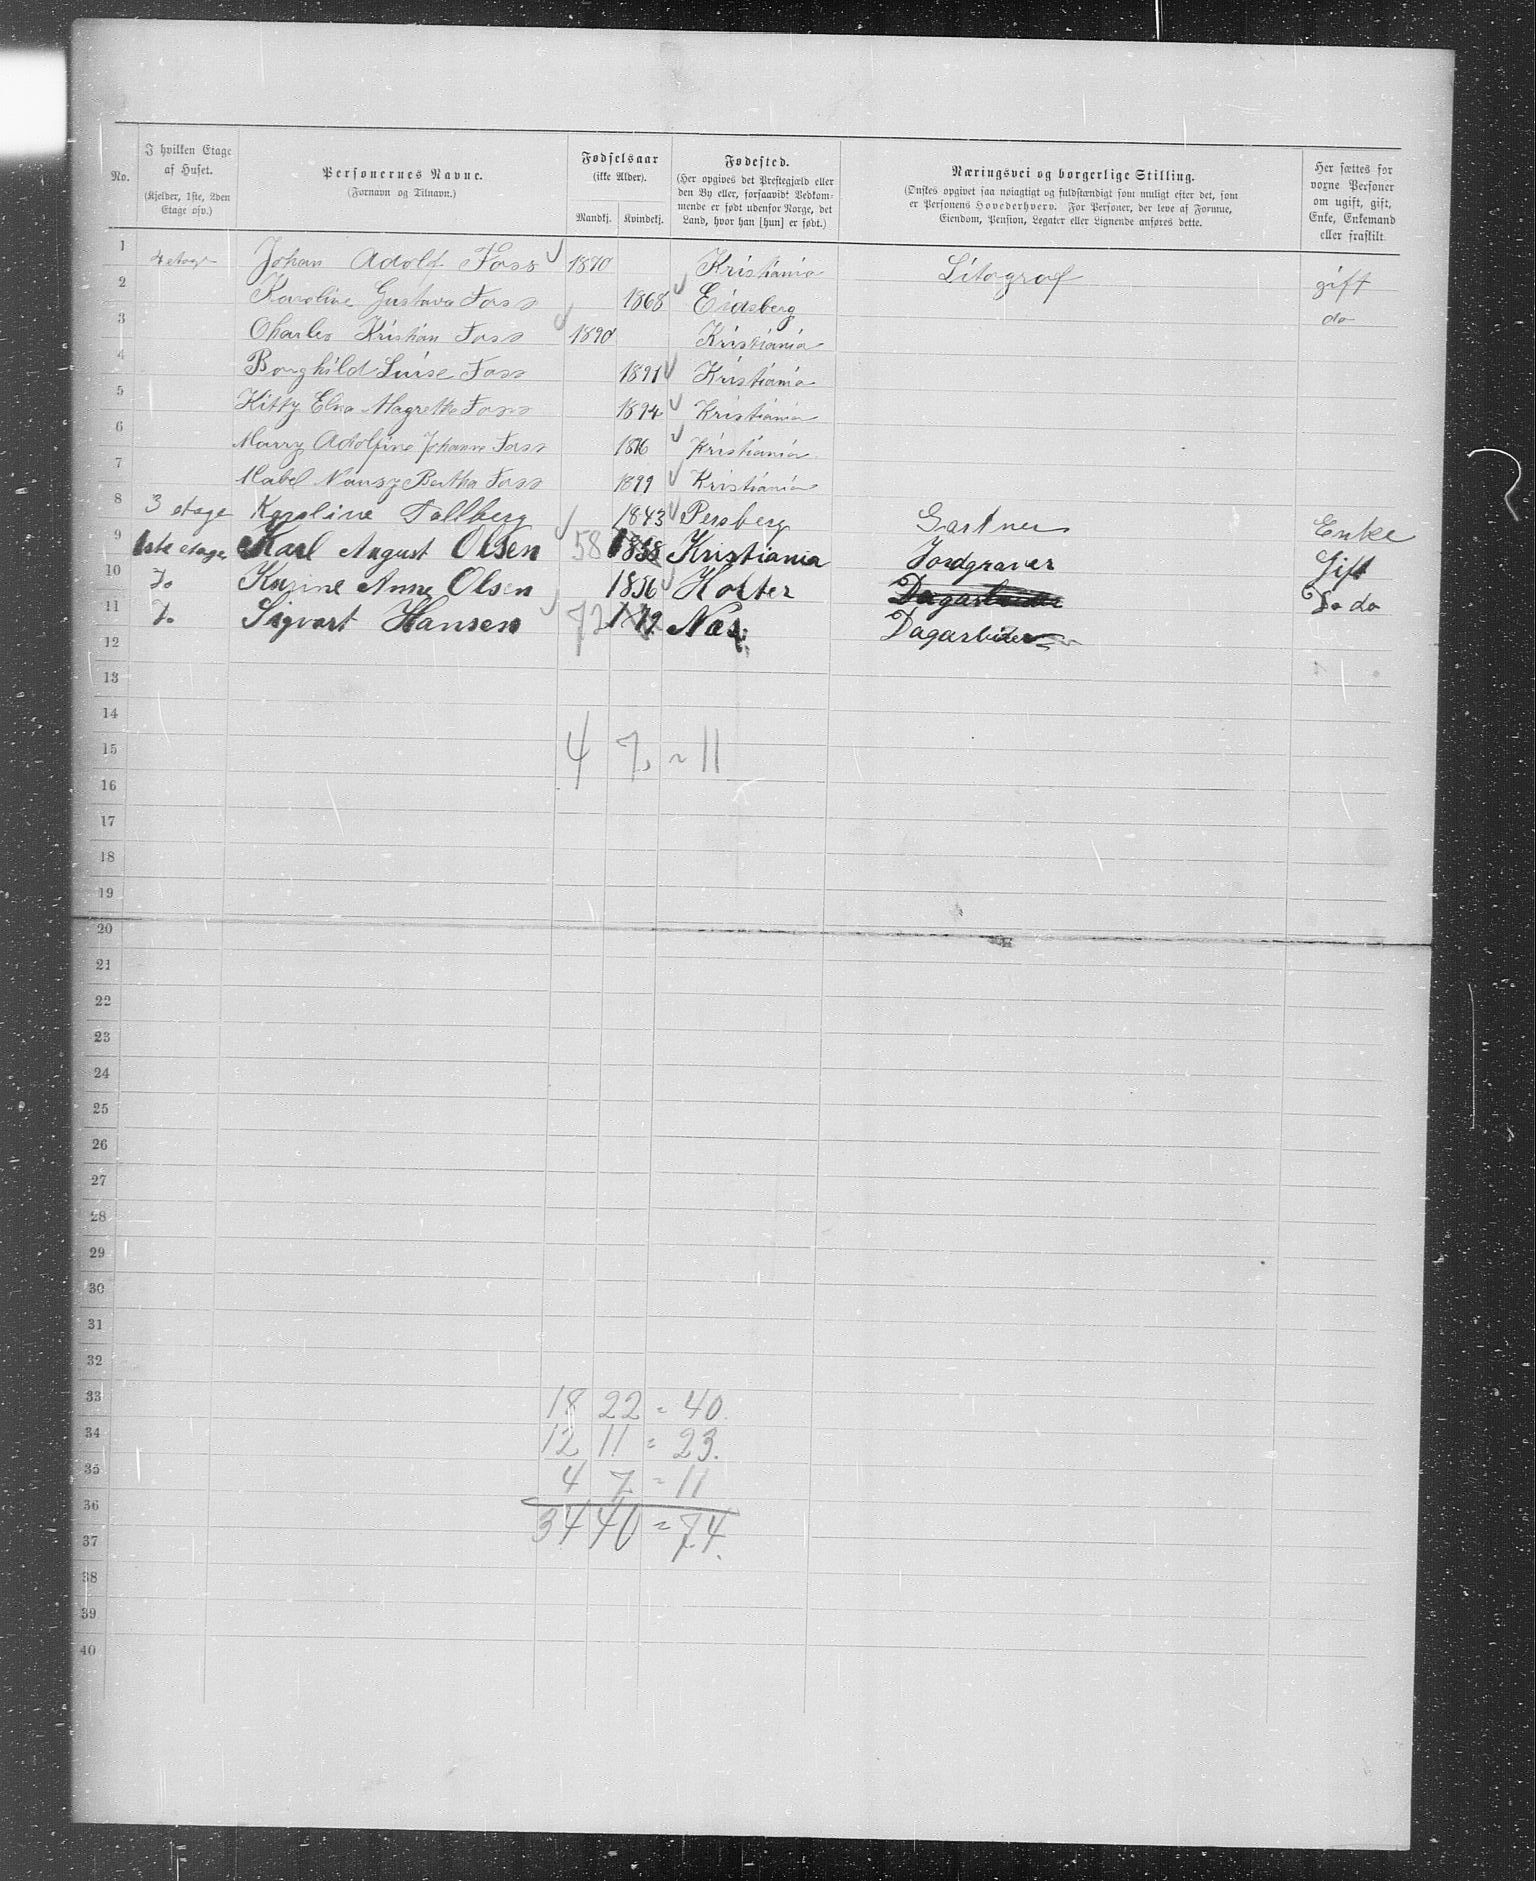 No.
I hvilken Etage af Huset.
(Kjelder, 1ste, 2den Etage osv.)
Personernes Navne.
(Fornavn og Tilnavn.)
Fødselsaar
(ikke Alder).
Mandkj. Kvindekj.
Fødested.
(Her opgives det Præstegjæld eller
den By eller, forsaavidt Vedkom-
mende er født udenfor Norge, det
Land, hvor han [hun] er født.)
Næringsvei og borgerlige Stilling.
(Ønskes opgivet saa nøiagtigt og fuldstændigt som muligt efter det, som
er Personens Hovederhverv. For Personer, der leve af Formue,
Eiendom, Pension, Legater eller Lignende anføres dette.
Her sættes for
voxne Personer
om ugift, gift,
Enke, Enkemand
eller fraskilt.
1 4 etage Johan Adolf Foss 1870 Kristiania Litograf gift
2 Karoline Gustava Foss 1868 Eidsberg do
3 Charles Kristian Foss 1890 Kristiania
4 Borghild Luise Foss 1891 Kristiania
5 Kitty Elna Magrethe Foss 1894 Kristiania
6 Marry Adolfine Johanne Foss 1896 Kristiania
7 Mabel Nansy Bertha Foss 1899 Kristiania
8 3 etage Karoline Follberg 1843 Gartner Enke
9 1ste etage Karl August Olsen 58 1858 Kristiania Jordgraver Gift
10 Do Karine Anne Olsen 1856 Holter Dagarbeider Do do
11 Do Sigvart Hansen 72 Nes Dagarbeider
12
13
14
15 4 7 = 11
16
17
18
19
20
21
22
23
24
25
26
27
28
29
30
31
32
33 18 22 = 40
34 12 11 = 23.
35 4 7 = 11
36 34 40 = 74.
37
38
39
40